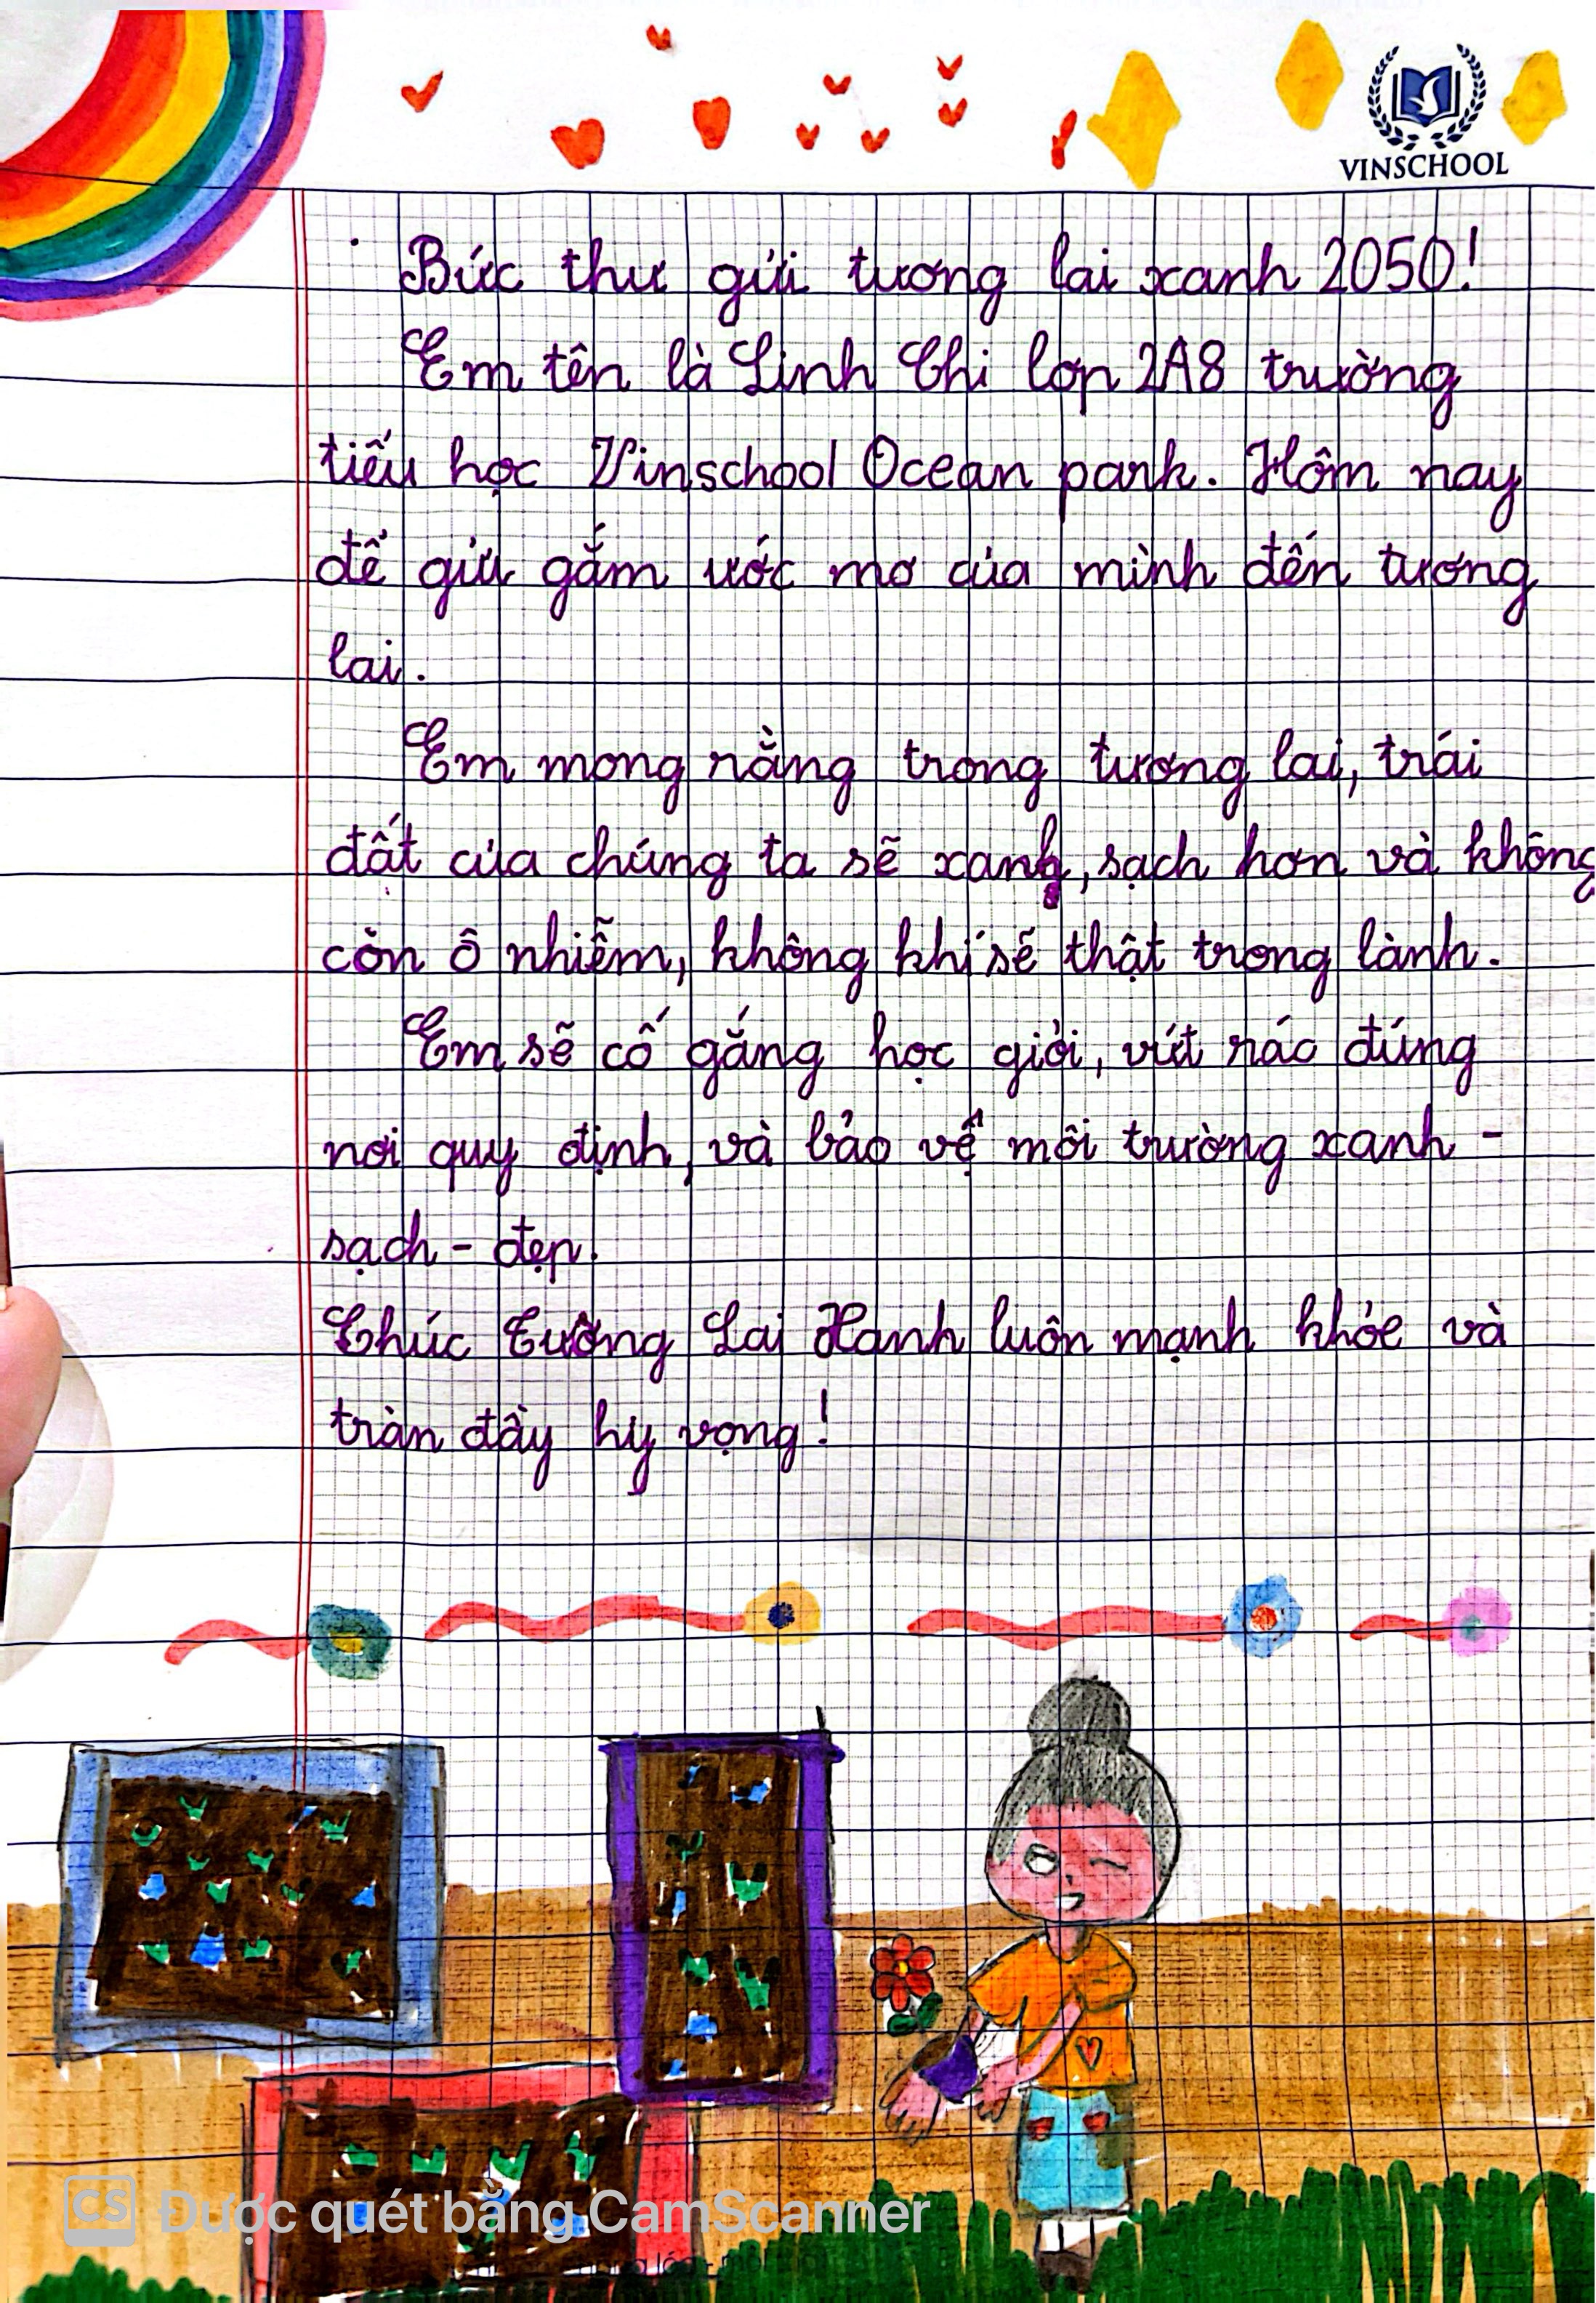 VINSCHOOL
Bức thư gửi tương lai xanh 2050!
Em tên là Linh Chi lớp 2A8 trường
tiểu học Vinschool Ocean park. Hôm nay
để gửi gắm ước mơ của mình đến tương
lai.
Em mong rằng trong tương lai, trái
đất của chúng ta sẽ xanh, sạch hơn và không
còn ô nhiễm, không khí sẽ thật trong lành.
Em sẽ cố gắng học giỏi, vứt rác đúng
nơi quy định, và bảo vệ môi trường xanh -
sạch - đẹp.
Chúc Tương Lai Xanh luôn mạnh khỏe và
tràn đầy hy vọng!
CS Được quét bằng CamScanner